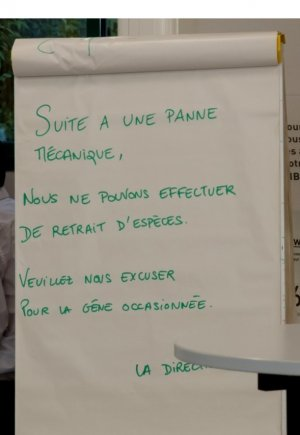 SUITE A UNE PANNE
MÉCANIQUE,
NOUS NE POUVONS EFFECTUER
DE RETRAIT D'ESPÈCES.
VEUILLEZ NOUS EXCUSER
POUR LA GÊNE OCCASIONNÉE.
LA